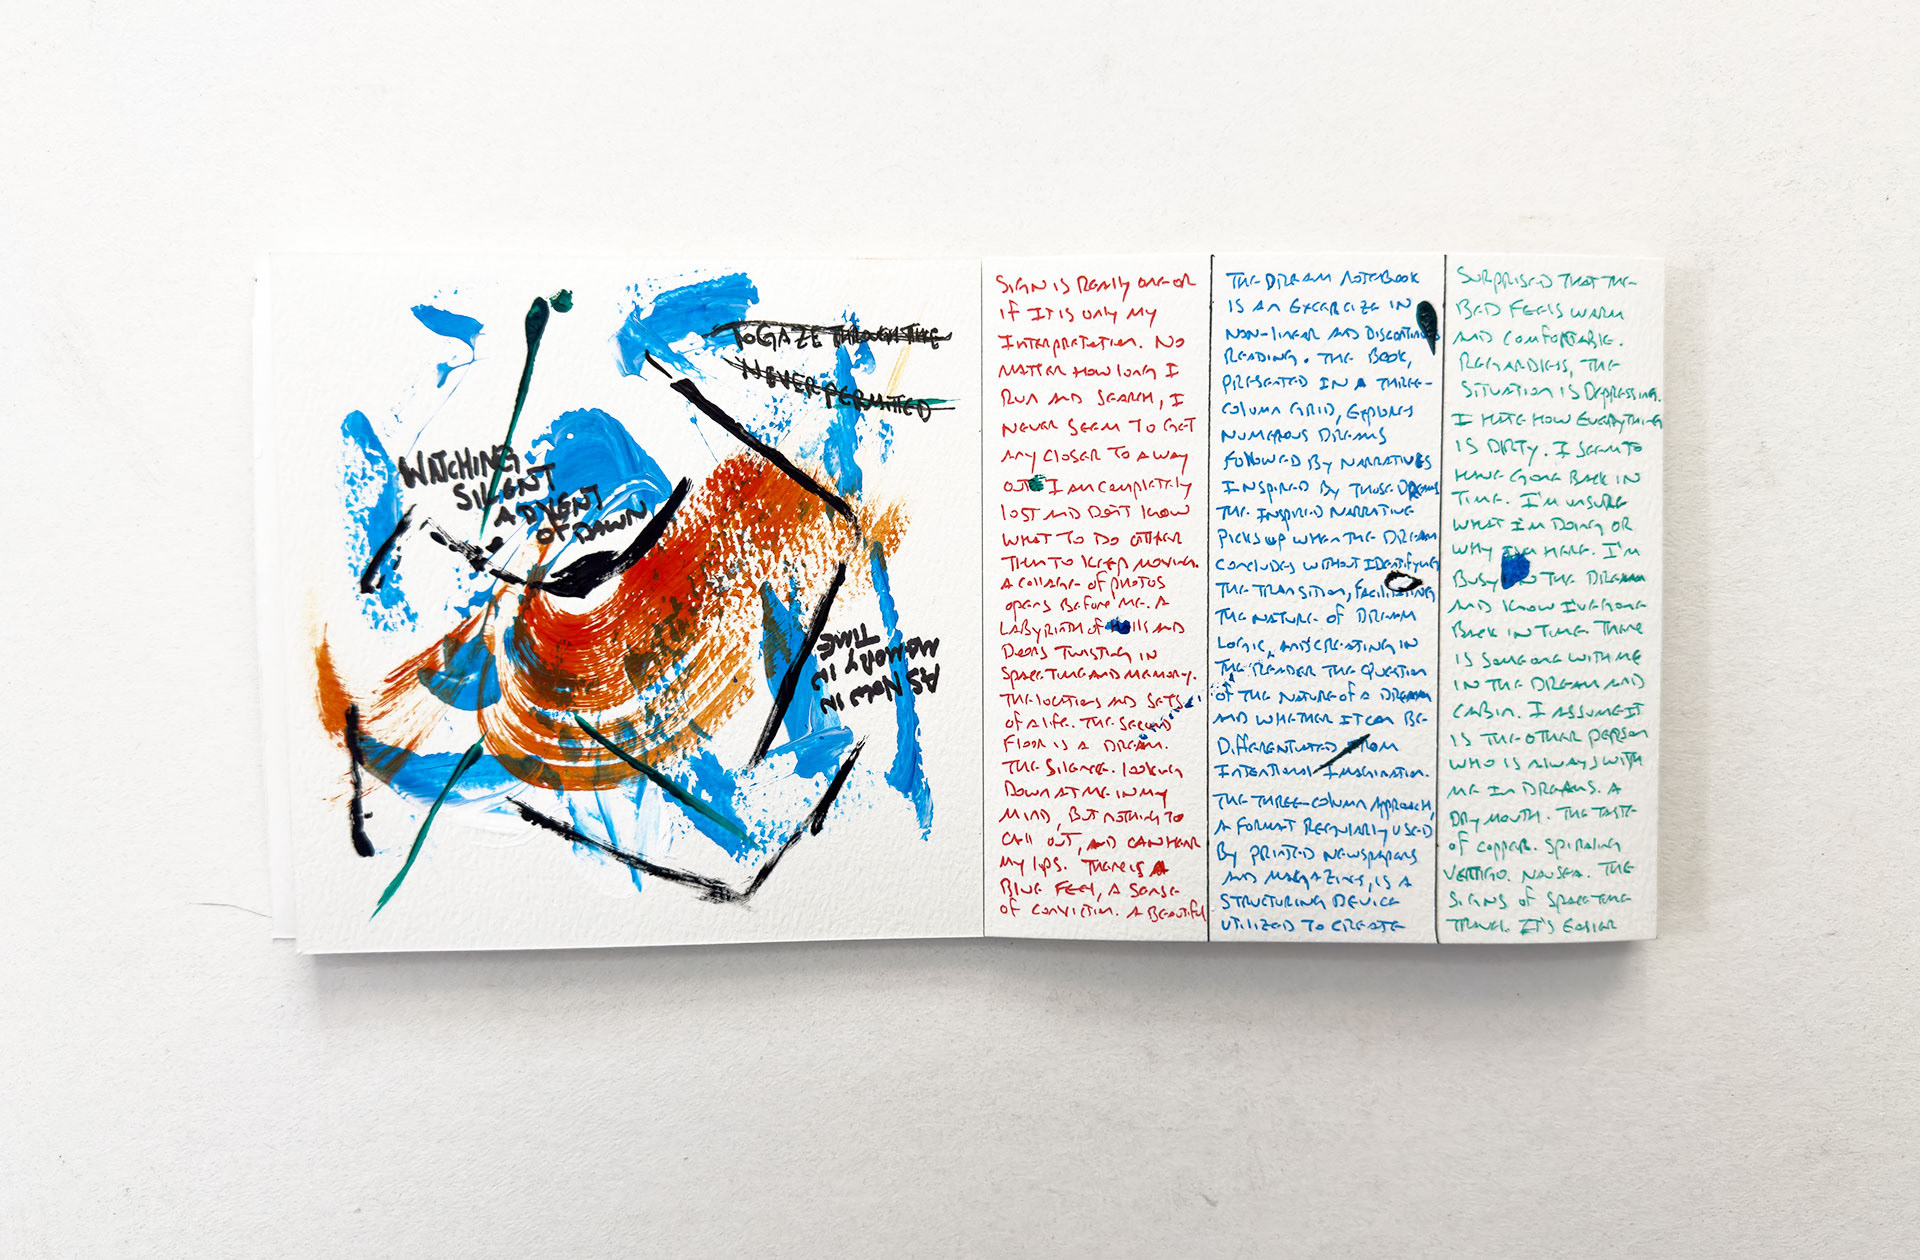 TO GAZE THROUGH TIME
NEVER PERMITTED
WATCHING
SILENT
ADVENT
OF DAWN
AS NOW IN
MEMORY IN
TIME
SIGN IS REALLY ONE OR
IF IT IS ONLY MY
INTERPRETATION. NO
MATTER HOW LONG I
RUN AND SEARCH, I
NEVER SEEM TO GET
ANY CLOSER TO A WAY
OUT I AM COMPLETELY
LOST AND DON'T KNOW
WHAT TO DO OTHER
THAN TO KEEP MOVING.
A COLLAGE OF PHOTOS
OPENS BEFORE ME. A
LABYRINTH OF HALLS AND
DOORS TWISTING IN
SPACE TIME AND MEMORY.
THE LOCATIONS AND SETS
OF A LIFE. THE SECOND
FLOOR IS A DREAM.
THE SILENCE. LOOKING
DOWN AT ME IN MY
MIND, BUT NOTHING TO
CALL OUT, AND CAN HEAR
MY LIPS. THERE IS A
BLUE FEEL, A SENSE
OF CONVICTION. A BEAUTIFUL
THE DREAM NOTEBOOK
IS AN EXCERCIZE IN
NON-LINEAR AND DISCONTINUOUS
READING. THE BOOK,
PRESENTED IN A THREE-
COLUMN GRID, EXPLORES
NUMEROUS DREAMS
FOLLOWED BY NARRATIVES
INSPIRED BY THOSE DREAMS
THE INSPIRED NARRATIVE
PICKS UP WHEN THE DREAM
CONCLUDES WITHOUT IDENTIFYING
THE TRANSITION, FACILITATING
THE NATURE OF DREAM
LOGIC, AND CREATING IN
THE READER THE QUESTION
OF THE NATURE OF A DREAM
AND WHETHER IT CAN BE
DIFFERENTIATED FROM
INTENTIONAL IMAGINATION.
THE THREE-COLUMN APPROACH,
A FORMAT REGULARLY USED
BY PRINTED NEWSPAPERS
AND MAGAZINES, IS A
STRUCTURING DEVICE
UTILIZED TO CREATE
SURPRISED THAT THE
BED FEELS WARM
AND COMFORTABLE.
REGARDLESS, THE
SITUATION IS DEPRESSING.
I HATE HOW EVERYTHING
IS DIRTY. I SEEM TO
HAVE GONE BACK IN
TIME. I'M UNSURE
WHAT I'M DOING OR
WHY I'M HERE. I'M
BUSY IN THE DREAM
AND KNOW I'VE GONE
BACK IN TIME. THERE
IS SOMEONE WITH ME
IN THE DREAM AND
CABIN. I ASSUME IT
IS THE OTHER PERSON
WHO IS ALWAYS WITH
ME IN DREAMS. A
DRY MOUTH. THE TASTE
OF COPPER. SPIRALING
VERTIGO. NAUSEA. THE
SIGNS OF SPACE TIME
TRAVEL. IT'S EASIER